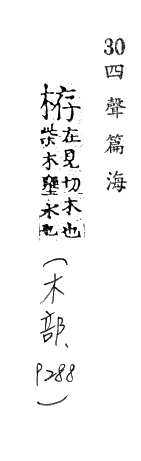 30四聲篇海
栫在見切木也
柴木壅水也
(木部、P288)